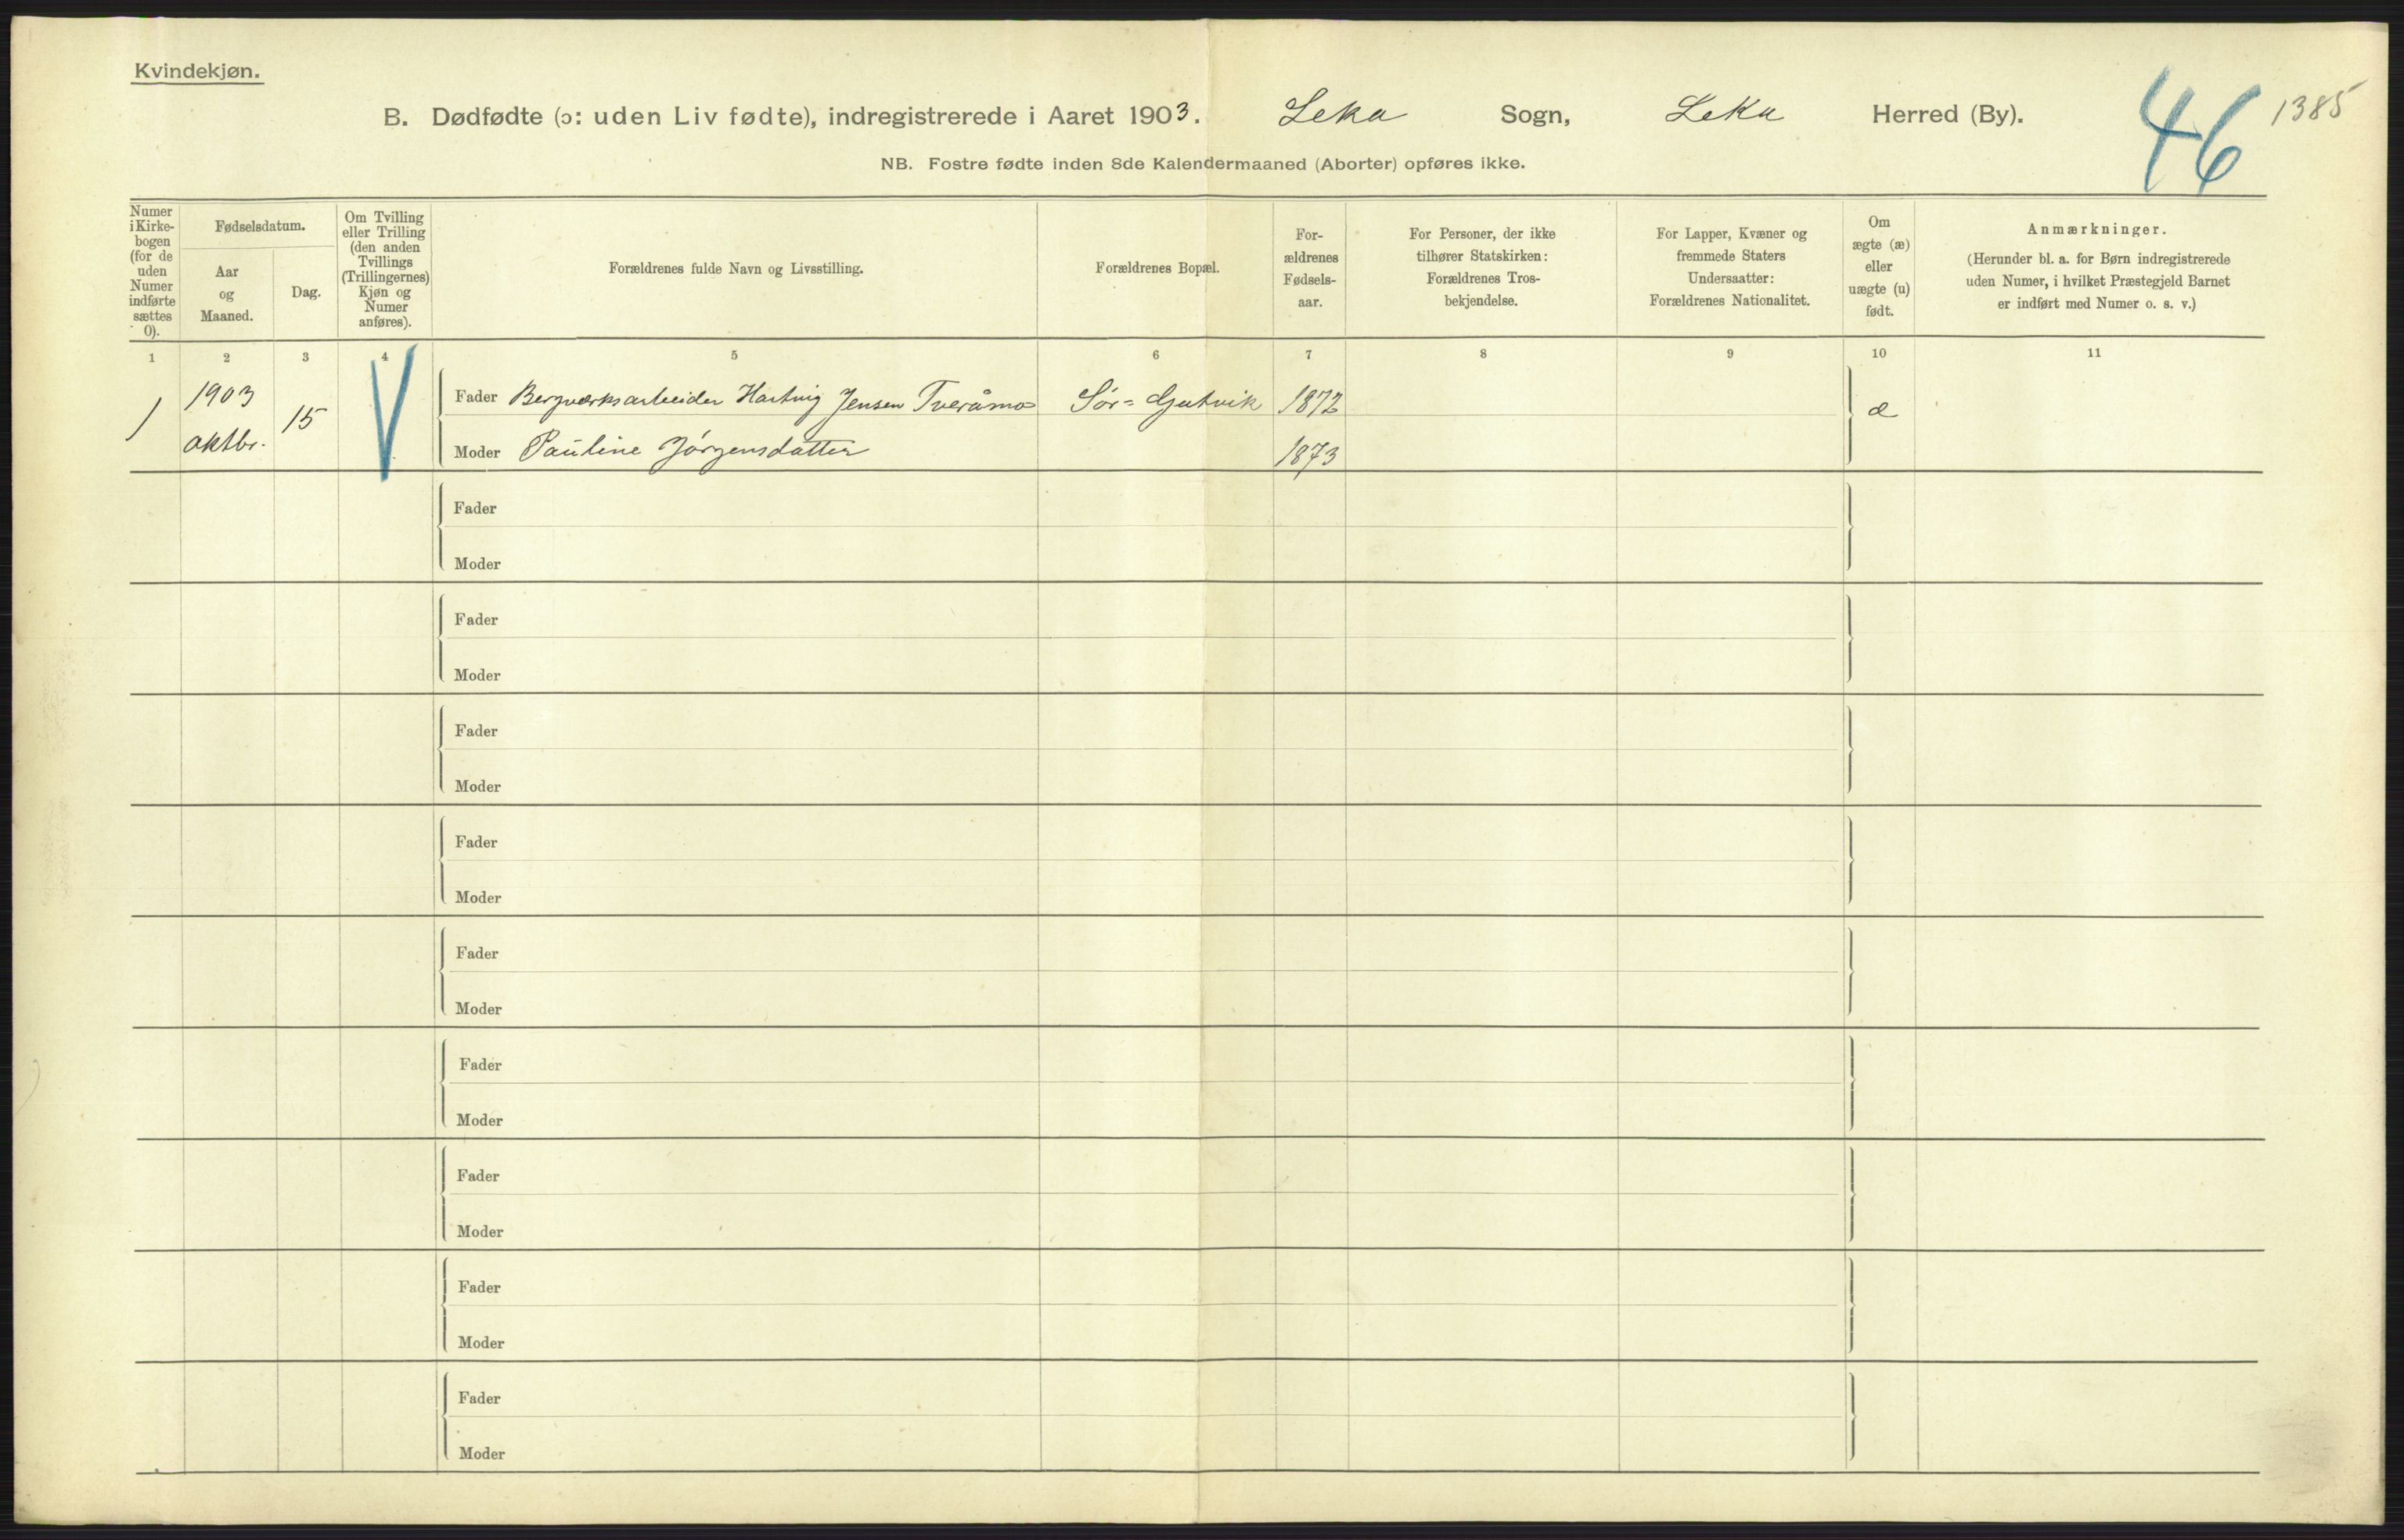 Kvindekjøn.
B. Dødfødte (ɔ: uden Liv fødte), indregistrerede i Aaret 1903. Leka Sogn, Leka Herred (By).
46 1385
NB. Fostre fødte inden 8de Kalendermaaned (Aborter) opføres ikke.
Numer
i Kirke-
bogen
(for de
uden
Numer
indførte
sættes
0).
Fødselsdatum.
Aar
og
Maaned.
Dag.
Om Tvilling
eller Trilling
(den anden
Tvillings
(Trillingernes)
Kjøn og
Numer
anføres).
Forældrenes fulde Navn og Livsstilling.
Forældrenes Bopæl.
For-
ældrenes
Fødsels-
aar.
For Personer, der ikke
tilhører Statskirken:
Forældrenes Tros-
bekjendelse.
For Lapper, Kvæner og
fremmede Staters
Undersaatter:
Forældrenes Nationalitet.
Om
ægte (æ)
eller
uægte (u)
født.
Anmærkninger.
(Herunder bl. a. for Børn indregistrerede
uden Numer, i hvilket Præstegjeld Barnet
er indført med Numer o. s. v.)
1 2 3 4 5 6 7 8 9 10 11
1 1903 oktbr. 15 Fader Bergværksarbeider Hartvig Jensen Tveråmo Sør-Gutvik 1872 æ
Moder Pauline Jørgensdatter 1873
Fader
Moder
Fader
Moder
Fader
Moder
Fader
Moder
Fader
Moder
Fader
Moder
Fader
Moder
Fader
Moder
Fader
Moder